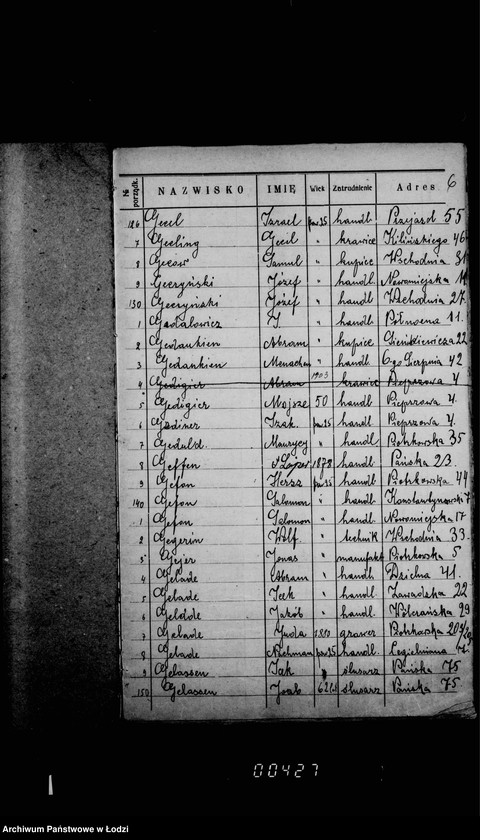 № porządk. NAZWISKO IMIĘ Wiek Zatrudnienie Adres 6
126 Gecel Izrael pow 35 handl. Przejazd 55
7 Gecling Gecil " krawiec Kilińskiego 46
8 Gecow Samul " kupiec Wschodnia 31
9 Geczyński Józef " handl. Nowomiejska
130 Geczyński Józef " handl. Wschodnia 27
1 Gedalowicz I. " handl. Północna 11.
2 Gedankien Abram " kupiec Sienkiewicza 22
3 Gedankien Menachem " handl. 6go Sierpnia 42
4 Gedigier Abram 1903 krawiec Pieprzowa 4
5 Gedigier Mojsze 50 handl. Pieprzowa 4.
6 Icak. pow 35 handl. Pieprzowa 4.
7 Geduld. Maurycy " handl. Piotrkowska 35
8 Geffen 1878 handl. Pańska 23.
9 Gefon Hersz pow 35 handl. Piotrkowska 44
140 Gefon Salomon " handl. Konstantynowska 7
1 Gefon Salomon " handl. Nowomiejska 17
2 Gegerin Wolf. " technik Wschodnia 33.
3 Gejer Jonas " manufakt Piotrkowska 5
4 Gelade Abram " handl. Dzielna 41.
5 Gelade Icek " handl. Zawadzka 22
6 Jakób " handl. Wólczańska 29
7 Gelade Juda 1880 grawer Piotrkowska
8 Gelade Nachman pow 35 handl. Cegielniana
9 Gelassen Icak " ślusarz Pańska 75
150 Gelassen ślusarz Pańska 75
00427
Archiwum Państwowe w Łodzi